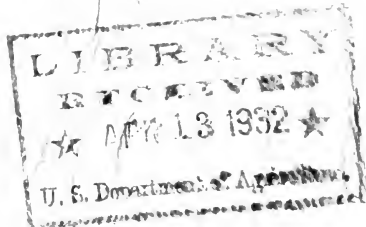 LIBRARY
RECEIVED
★ APR 13 1932 ★
U. S. Department of Agriculture